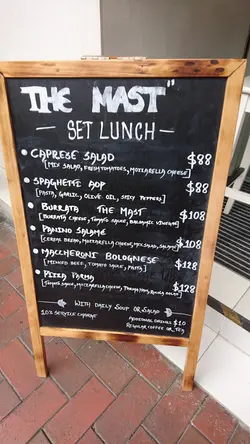 THE MAST"
— SET LUNCH —
CAPRESE SALAD $88
[MIX SALAD, FRESH TOMATOES, MOZZARELLA CHEESE]
SPAGHETTI AOP $88
[PASTA, GARLIC, OLIVE OIL, SPICY PEPPERS]
BURRATA THE MAST $108
[BURRATA CHEESE, TOMATO SAUCE, BALSAMIC VINEGAR]
PANINO SALAME $108
[CEREAL BREAD, MOZZARELLA CHEESE, MIX SALAD, SALAME]
MACCHERONI BOLOGNESE $128
[MINCED BEEF, TOMATO SAUCE, PASTA]
PIZZA PARMA $128
[TOMATO SAUCE, MOZZARELLA CHEESE, PARMA HAM,
WITH DAILY SOUP OR SALAD
10% SERVICE CHARGE ADDITIONAL DRINKS $10
REGULAR COFFEE OR TEA